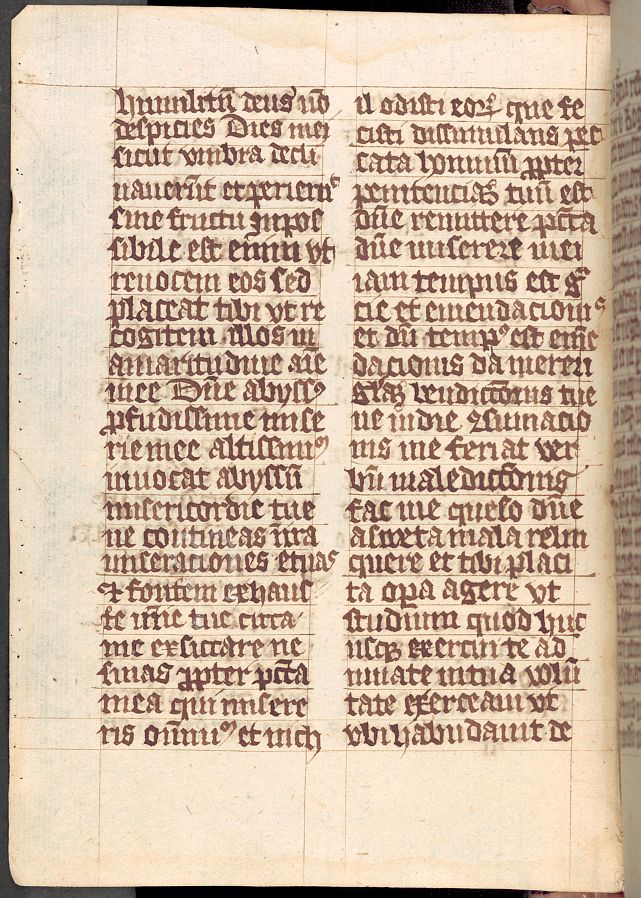 humilitū deus nō
despicies Dies mei
sicut vmbra decli
nauerūt et perierūt
sine fructu Inpos
sibile est enim vt
reuocem eos sed
placeat tibi vt re
cogitem illos in
amaritudine aīe
mee Dn̄e abyssꝰ
ꝓfūdissime mise
rie mee altissimā
inuocat abyssū
misericordie tue
ne contineas in ira
miseraciones tuas
et fontem exhaus
te mīe tue circa
me exsiccare ne
sinas ꝓpter pctā
mea qui misere
ris oīmꝰ et nich
il odisti eoꝝ que fe
cisti dissimulans pec
cata hominū ꝓpter
penitenciaꝫ tuū est
dn̄e remittere pctā
dn̄e miserere mei
iam tempus est grā
cie et emendacionis
et dū tempꝰ est emē
dacionis da mereri
graꝫ bendictōnis tue
ne in die ꝯsumacio
nis me feriat ver
bū maledictōnis
fac me queso dn̄e
assweta mala relin
quere et tibi placi
ta oꝑa agere vt
studium quod huc
usqꝫ exercui te ad
iuuate in tua volū
tate exerceam vt
vbi habundauit de